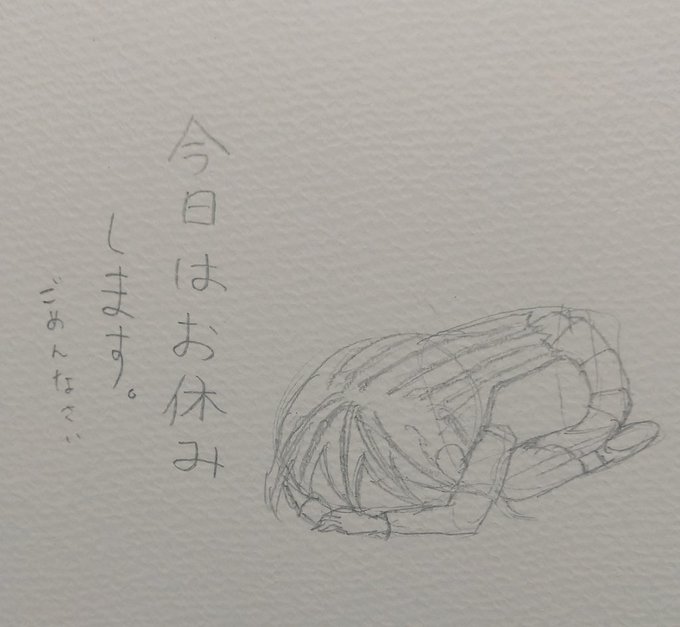 今日はお休み
します。
ごめんなさい